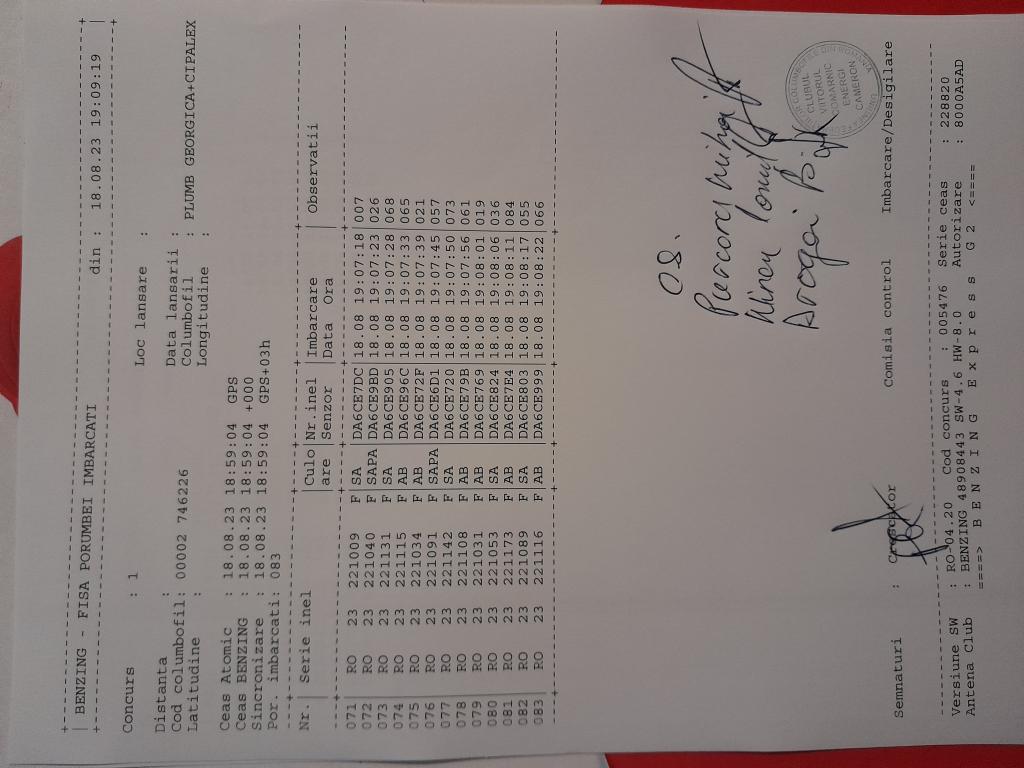 BENZING - FISA PORUMBEI IMBARCATI din : 18.08.23 19:09:19
Concurs : 1 Loc lansare :
Distanta : Data lansarii :
Cod columbofil: 00002 746226 Columbofil : PLUMB GEORGICA+CIPALEX
Latitudine : Longitudine :
Ceas Atomic : 18.08.23 18:59:04 GPS
Ceas BENZING : 18.08.23 18:59:04 +000
Sincronizare : 18.08.23 18:59:04 GPS+03h
Por. imbarcati: 083
Nr.| Serie inel |Culo|Nr.inel |Imbarcare | Observatii
|are |Senzor |Data Ora |
071 RO 23 221009 F SA DA6CE7DC 18.08 19:07:18 007
072 RO 23 221040 F SAPA DA6CE9BD 18.08 19:07:23 026
073 RO 23 221131 F SA DA6CE905 18.08 19:07:28 068
074 RO 23 221115 F AB DA6CE96C 18.08 19:07:33 065
075 RO 23 221034 F AB DA6CE72F 18.08 19:07:39 021
076 RO 23 221091 F SAPA DA6CE6D1 18.08 19:07:45 057
077 RO 23 221142 F SA DA6CE720 18.08 19:07:50 073
078 RO 23 221108 F AB DA6CE79B 18.08 19:07:56 061
079 RO 23 221031 F AB DA6CE769 18.08 19:08:01 019
080 RO 23 221053 F SA DA6CE824 18.08 19:08:06 036
081 RO 23 221173 F AB DA6CE7E4 18.08 19:08:11 084
082 RO 23 221089 F SA DA6CE803 18.08 19:08:17 055
083 RO 23 221116 F AB DA6CE999 18.08 19:08:22 066
CLUBUL
VIITORUL
ENERGI
CAMERON
Semnaturi : Crescator Comisia control Imbarcare/Desigilare
Versiune SW : RO-04.20 Cod concurs : 005476 Serie ceas : 228820
Antena Club : BENZING 48908443 SW-4.6 HW-8.0 Autorizare : 8000A5AD
====> B E N Z I N G E x p r e s s G 2 <====